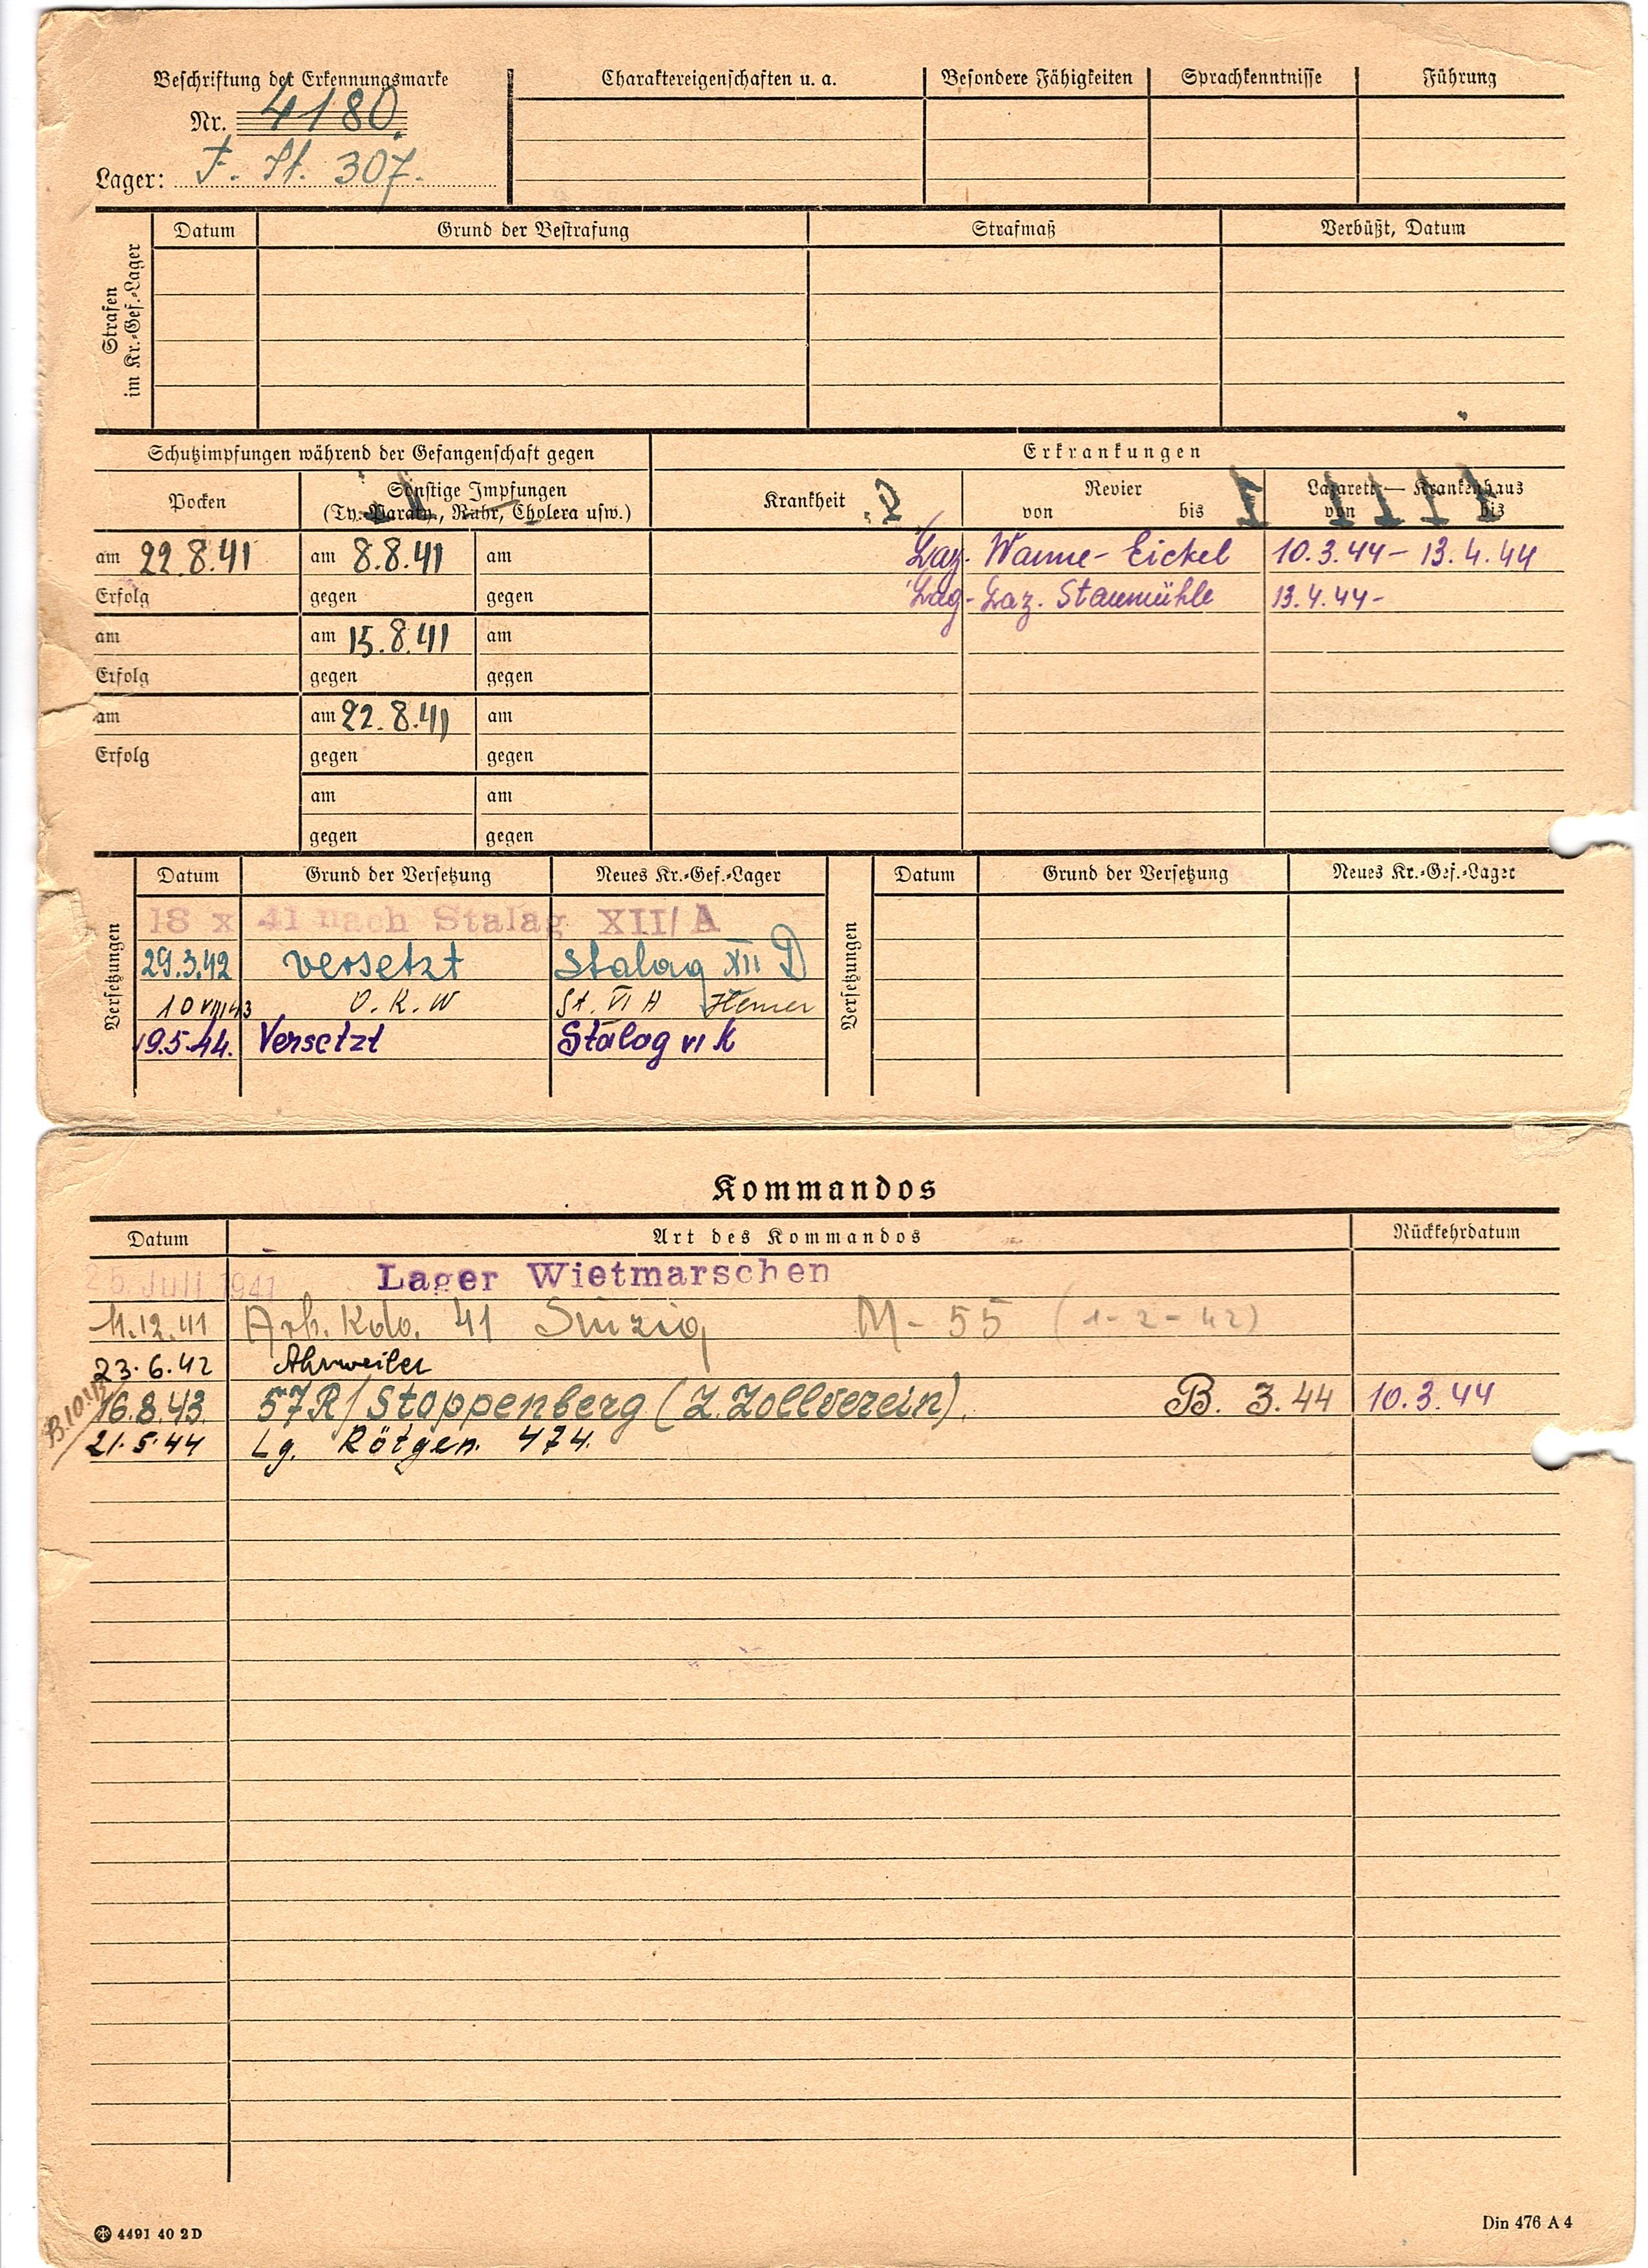 Beschriftung der Erkennungsmarke
Nr. 4180.
Lager: F. St. 307.
Charaktereigenschaften u. a.
Besondere Fähigkeiten
Sprachkenntnisse
Führung
Strafen
im Kr.-Gef.-Lager
Datum
Grund der Bestrafung
Strafmaß
Verbüßt, Datum
Schutzimpfungen während der Gefangenschaft gegen
Erkrankungen
Pocken
Sonstige Impfungen
(Ty.-Paraty., Ruhr, Cholera usw.)
Krankheit
Revier
von bis
Lazarett — Krankenhaus
von bis
am 22.8.41 am 8.8.41 am
Laz. Wanne-Eickel 10.3.44 – 13.4.44
Erfolg gegen gegen
Lag-Laz. Staumühle 13.4.44 -
am am 15.8.41 am
Erfolg gegen gegen
am am 22.8.41 am
Erfolg gegen gegen
am am
gegen gegen
Versetzungen
Datum Grund der Versetzung Neues Kr.-Gef.-Lager
18 X 41 nach Stalag XII/A
29.3.42 versetzt Stalag XII D
10 VIII 43 O.K.W St. VI A Hemer
19.5.44. Versetzt Stalag VI K
Versetzungen
Datum Grund der Versetzung Neues Kr.-Gef.-Lager
Kommandos
Datum Art des Kommandos Rückkehrdatum
25. Juli 1941 Lager Wietmarschen
11.12.41 Arb. Kdo. 41 Sinzig M-55 (1-2-42)
23.6.42 Ahrweiler
16.8.43. 57R/Stoppenberg (Z. Zollverein). B. 3.44 10.3.44
21.5.44 Lg. Rötgen. 474.
4491 40 2D
Din 476 A 4